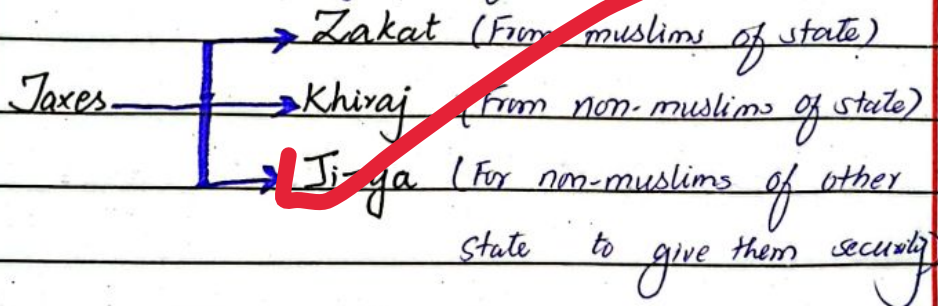 Zakat (From muslims of state)
Taxes Khiraj (From non-muslims of state)
Ji-ya (For non-muslims of other
state to give them security